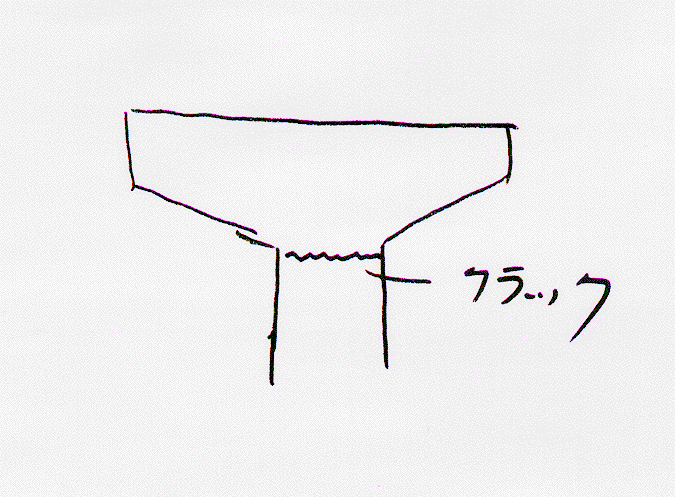 クラック